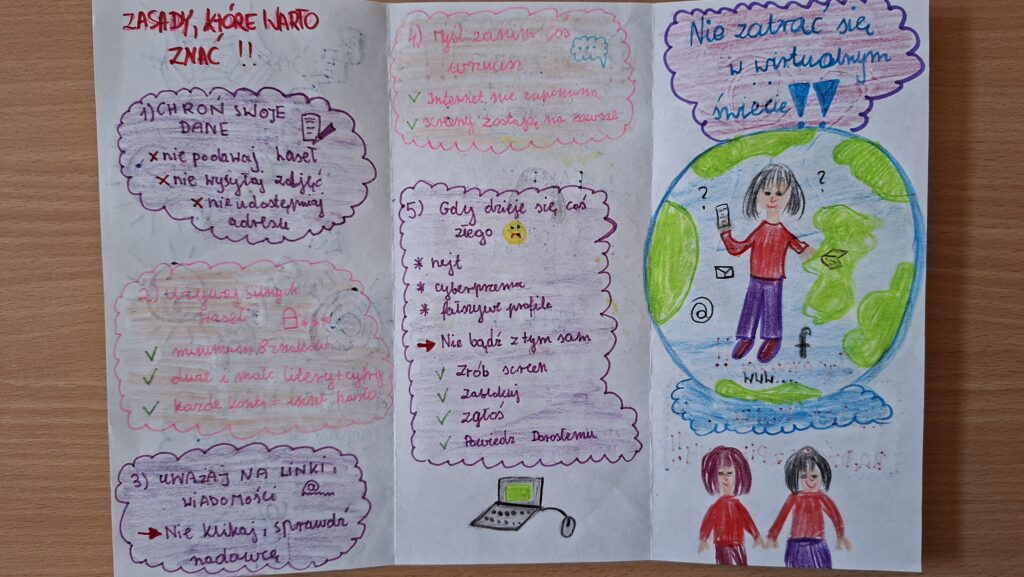 ZASADY, KTÓRE WARTO
ZNAĆ !!
1) CHROŃ SWOJE
DANE
x nie podawaj haseł
x nie wysyłaj zdjęć
x nie udostępniaj
adresu
2) Używaj silnych
haseł
✓ minimum 8 znaków
✓ duże i małe litery + cyfry
✓ każde konto = inne hasło
3) UWAŻAJ NA LINKI,
WIADOMOŚCI
→ Nie klikaj, sprawdź
nadawcę
4) Myśl zanim coś
wrzucisz
✓ Internet nie zapomina
✓ screeny zostają na zawsze
5) Gdy dzieje się coś
złego
* hejt
* cyberprzemoc
* fałszywe profile
→ Nie bądź z tym sam
✓ Zrób screen
✓ Zablokuj
✓ zgłoś
✓ Powiedz Dorosłemu
Nie zatrać się
w wirtualnym
świecie !!
? ?
@
f
www...